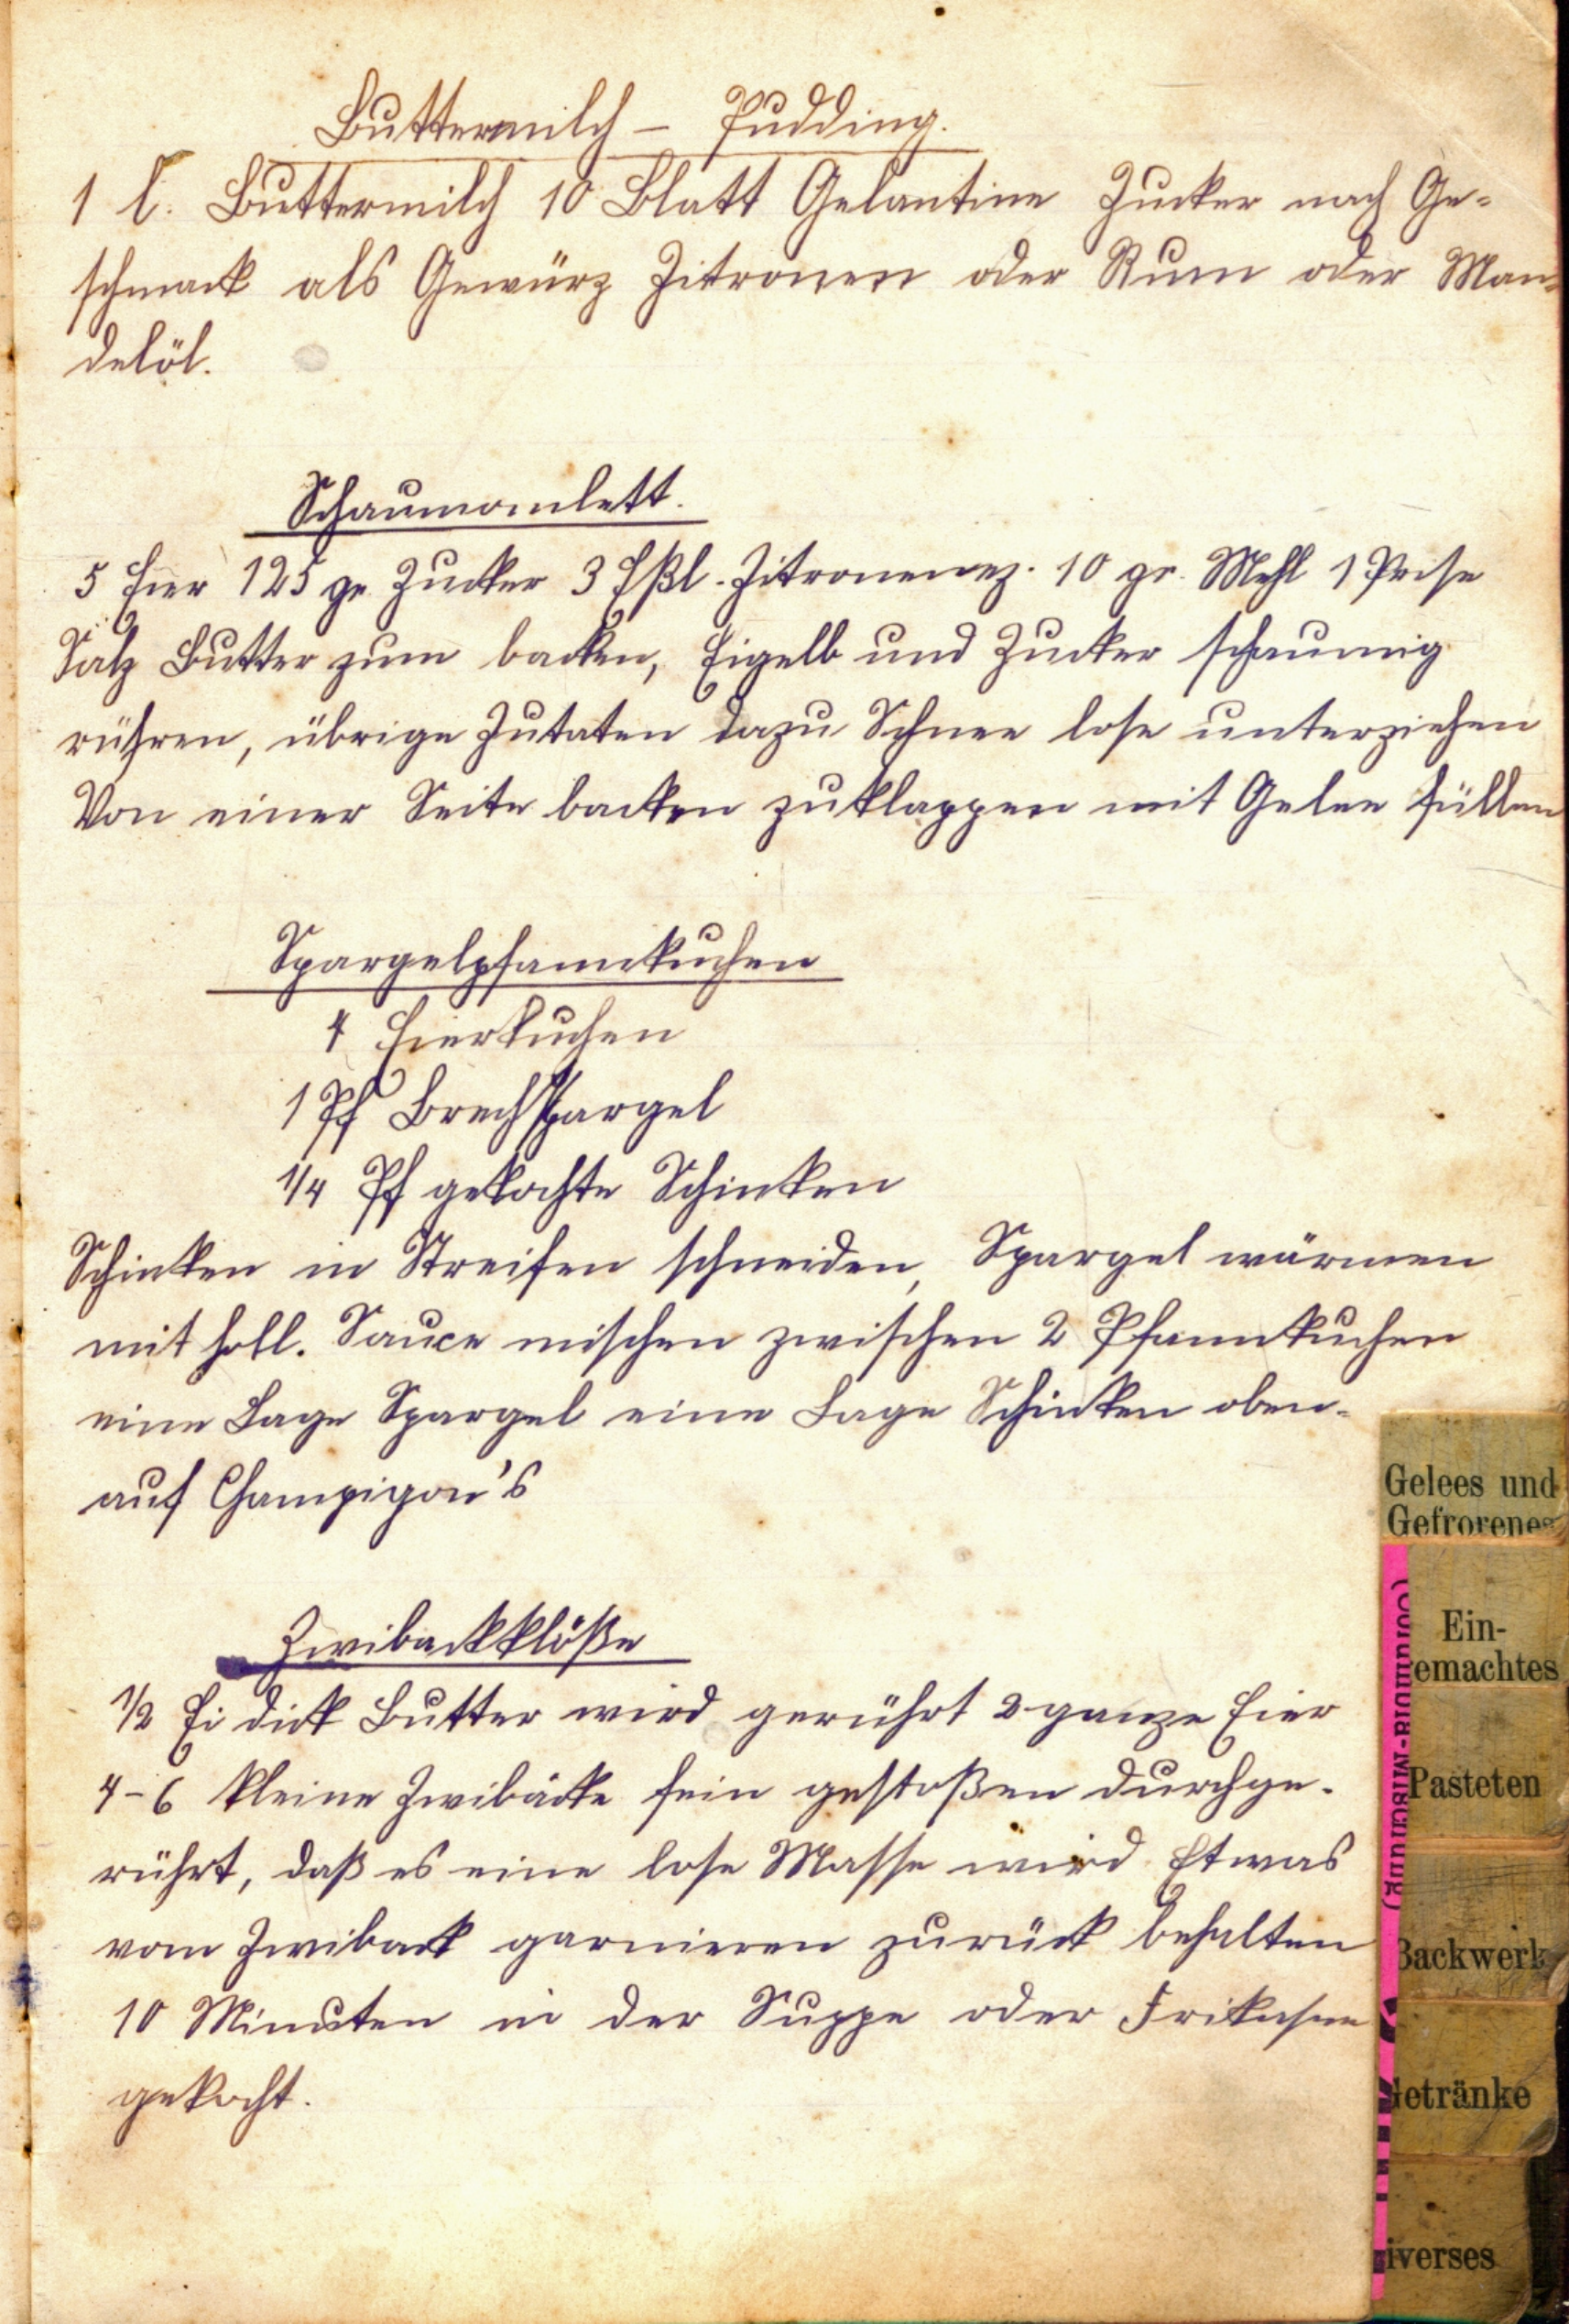 Buttermilch – Pudding.
1 l. Buttermilch 10 Blatt Gelantine Zucker nach Ge-
schmack als Gewürz Zitronen oder Rum oder Man-
delöl.
Schaumomlett.
5 Eier 125 gr. Zucker 3 Eßl. Zitronenez. 10 gr. Mehl 1 Prise
Salz Butter zum backen, Eigelb und Zucker schaumig
rühren, übrige Zutaten dazu Schnee lose unterziehen
Von einer Seite backen zuklappen mit Gelee füllen
Spargelpfannkuchen
4 Eierkuchen
1 Pf Brechspargel
1/4 Pf gekochte Schinken
Schinken in Streifen schneiden, Spargel wärmen
mit holl. Sauce mischen zwischen 2 Pfannkuchen
eine Lage Spargel eine Lage Schinken oben-
auf Champigon's
Zwibackklöße
1/2 Ei dick Butter wird gerührt 2 ganze Eier
4-6 kleine Zwibäcke fein gestoßen durchge-
rührt, daß es eine lose Masse wird Etwas
vom Zwiback garnieren zurück behalten
10 Minuten in der Suppe oder Frikasee
gekocht.
Gelees und
Gefrorenes
Ein-
emachtes
Pasteten
Backwerk
Getränke
iverses